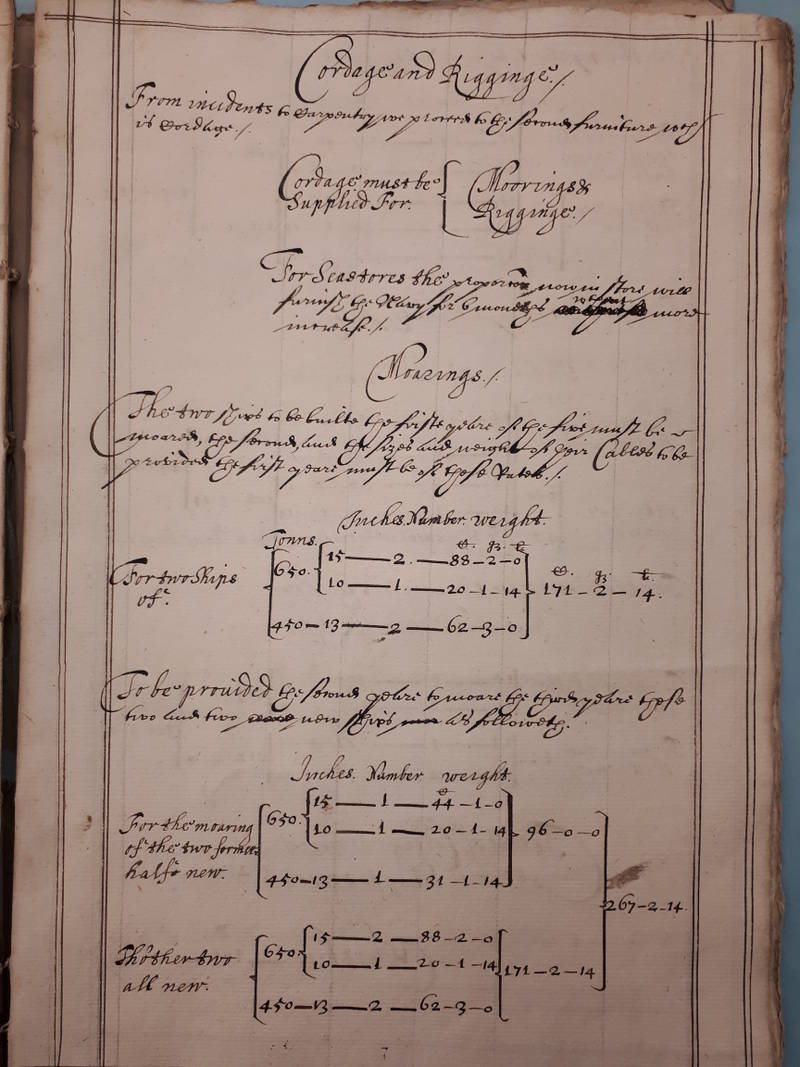 Cordage and Rigginge./
From incidents to Carpentry we proceed to the second furniture wch
is Cordage./
Cordage must be Supplied For. { Moorings &
Rigginge./
For Seastores the proporcon now in store will
furnish the Navy for 6 moneths without more
increase./
Moarings./
The two ships to be builte the firste yeare of the five must be
moared, the second, and the sizes and weight of their Cables to be
provided the first yeare must be of these Rates./
Inches. Number. weight.
Tonns. C. qr. l.
For two Ships of. 650. 15 — 2. — 88 – 2 – 0
10 — 1. — 20 – 1 – 14
C. qr. l.
171 – 2 – 14.
450 – 13 — 2 — 62 – 3 – 0
To be provided the second yeare to moare the third yeare these
two and two new ships as followeth.
Inches. Number weight.
C
For the moaring of the two former halfe new. 650. 15 — 1 — 44 – 1 – 0
10 — 1 — 20 – 1 – 14
96 – 0 – 0
450 – 13 — 1 — 31 – 1 – 14
267 – 2 – 14.
Thother two all new. 650. 15 — 2 — 88 – 2 – 0
10 — 1 — 20 – 1 – 14
171 – 2 – 14
450 – 13 — 2 — 62 – 3 – 0